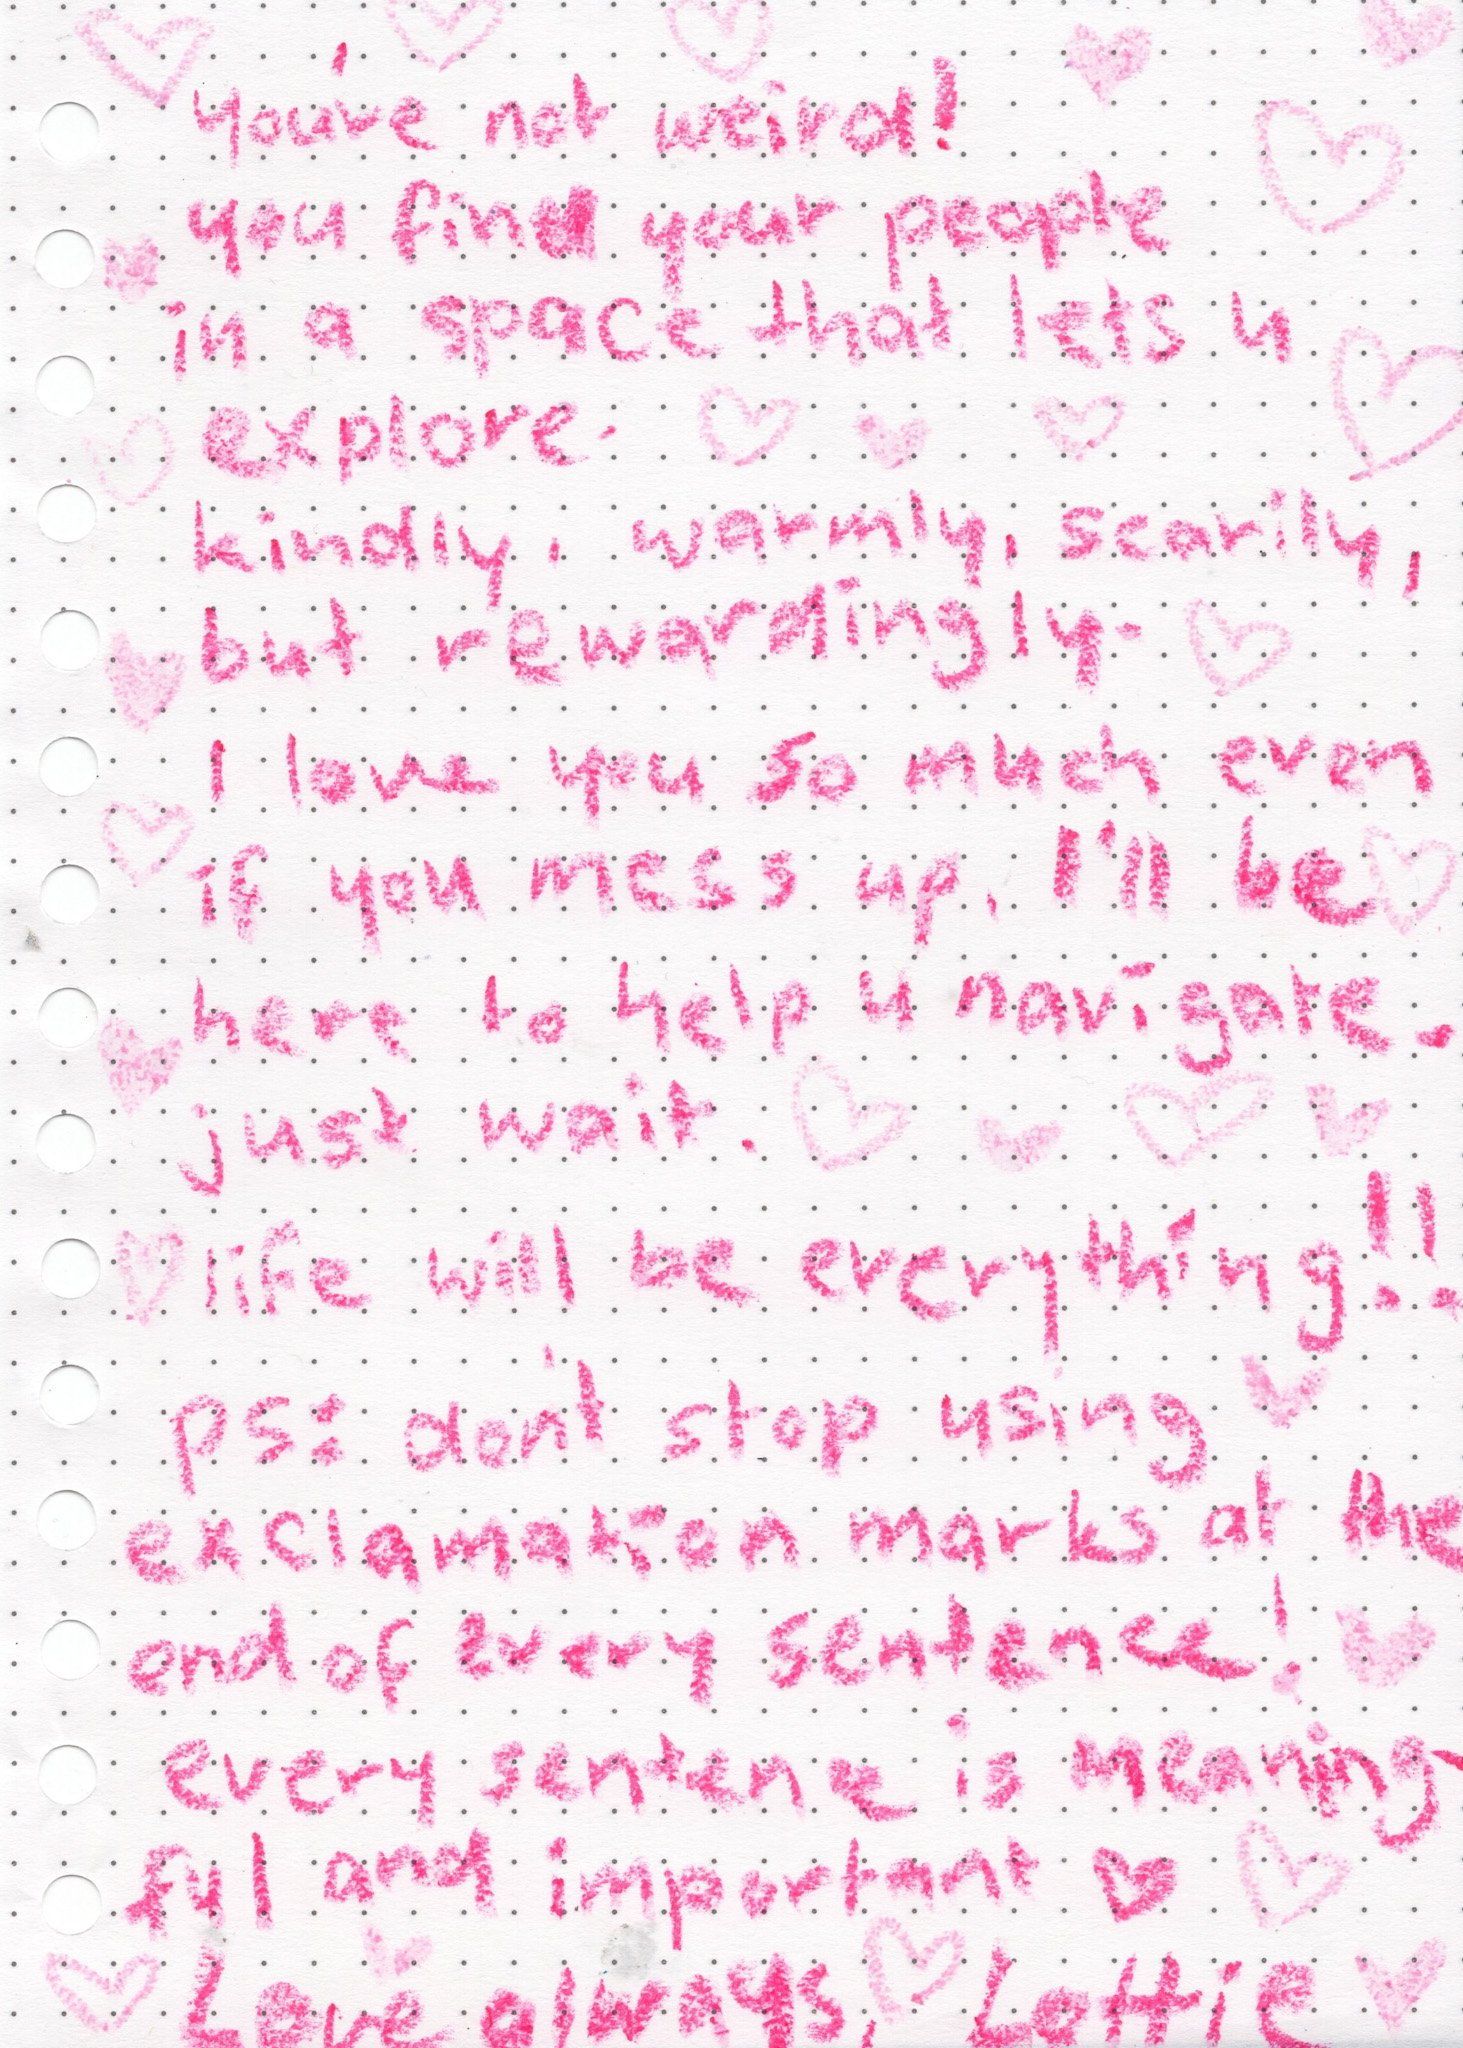 you're not weird!
you find your people
in a space that lets u
explore.
kindly, warmly, scarily,
but rewardingly.
I love you so much even
if you mess up, I'll be
here to help u navigate.
just wait.
life will be everything!!
ps: don't stop using
exclamation marks at the
end of every sentence!
every sentence is meaning-
ful and important ♥
Love always, Lottie